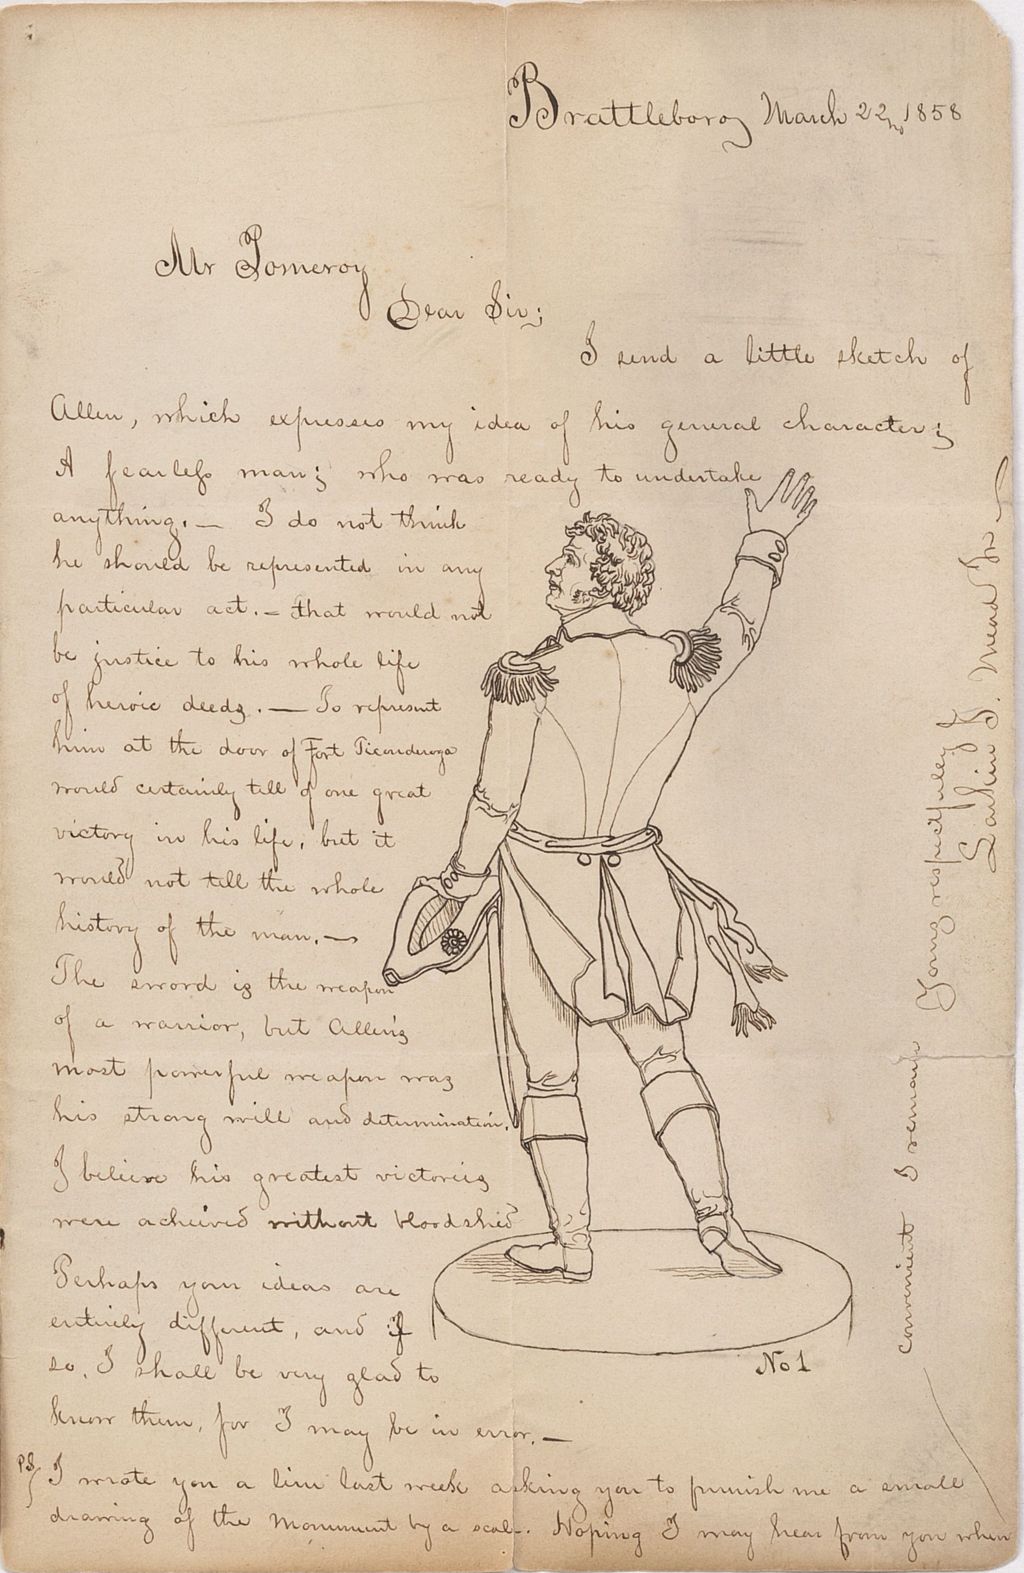 Brattleboro, March 22nd, 1858
Mr Pomeroy
Dear Sir;
I send a little sketch of
Allen, which expresses my idea of his general character;
A fearless man; who was ready to undertake
anything. — I do not think
he should be represented in any
particular act. — that would not
be justice to his whole life
of heroic deeds. — To represent
him at the door of Fort Ticonderoga
would certainly tell of one great
victory in his life, but it
would not tell the whole
history of the man. —
The sword is the weapon
of a warrior, but Allen's
most powerful weapon was
his strong will and determination.
I believe his greatest victories
were acheived without bloodshed
Perhaps your ideas are
entirely different, and if
so, I shall be very glad to
know them, for I may be in error. —
No 1
P.S. I wrote you a line last week asking you to furnish me a small
drawing of the Monument by a scale. Hoping I may hear from you when
convenient I remain Yours respectfully
Larkin G. Mead Jr